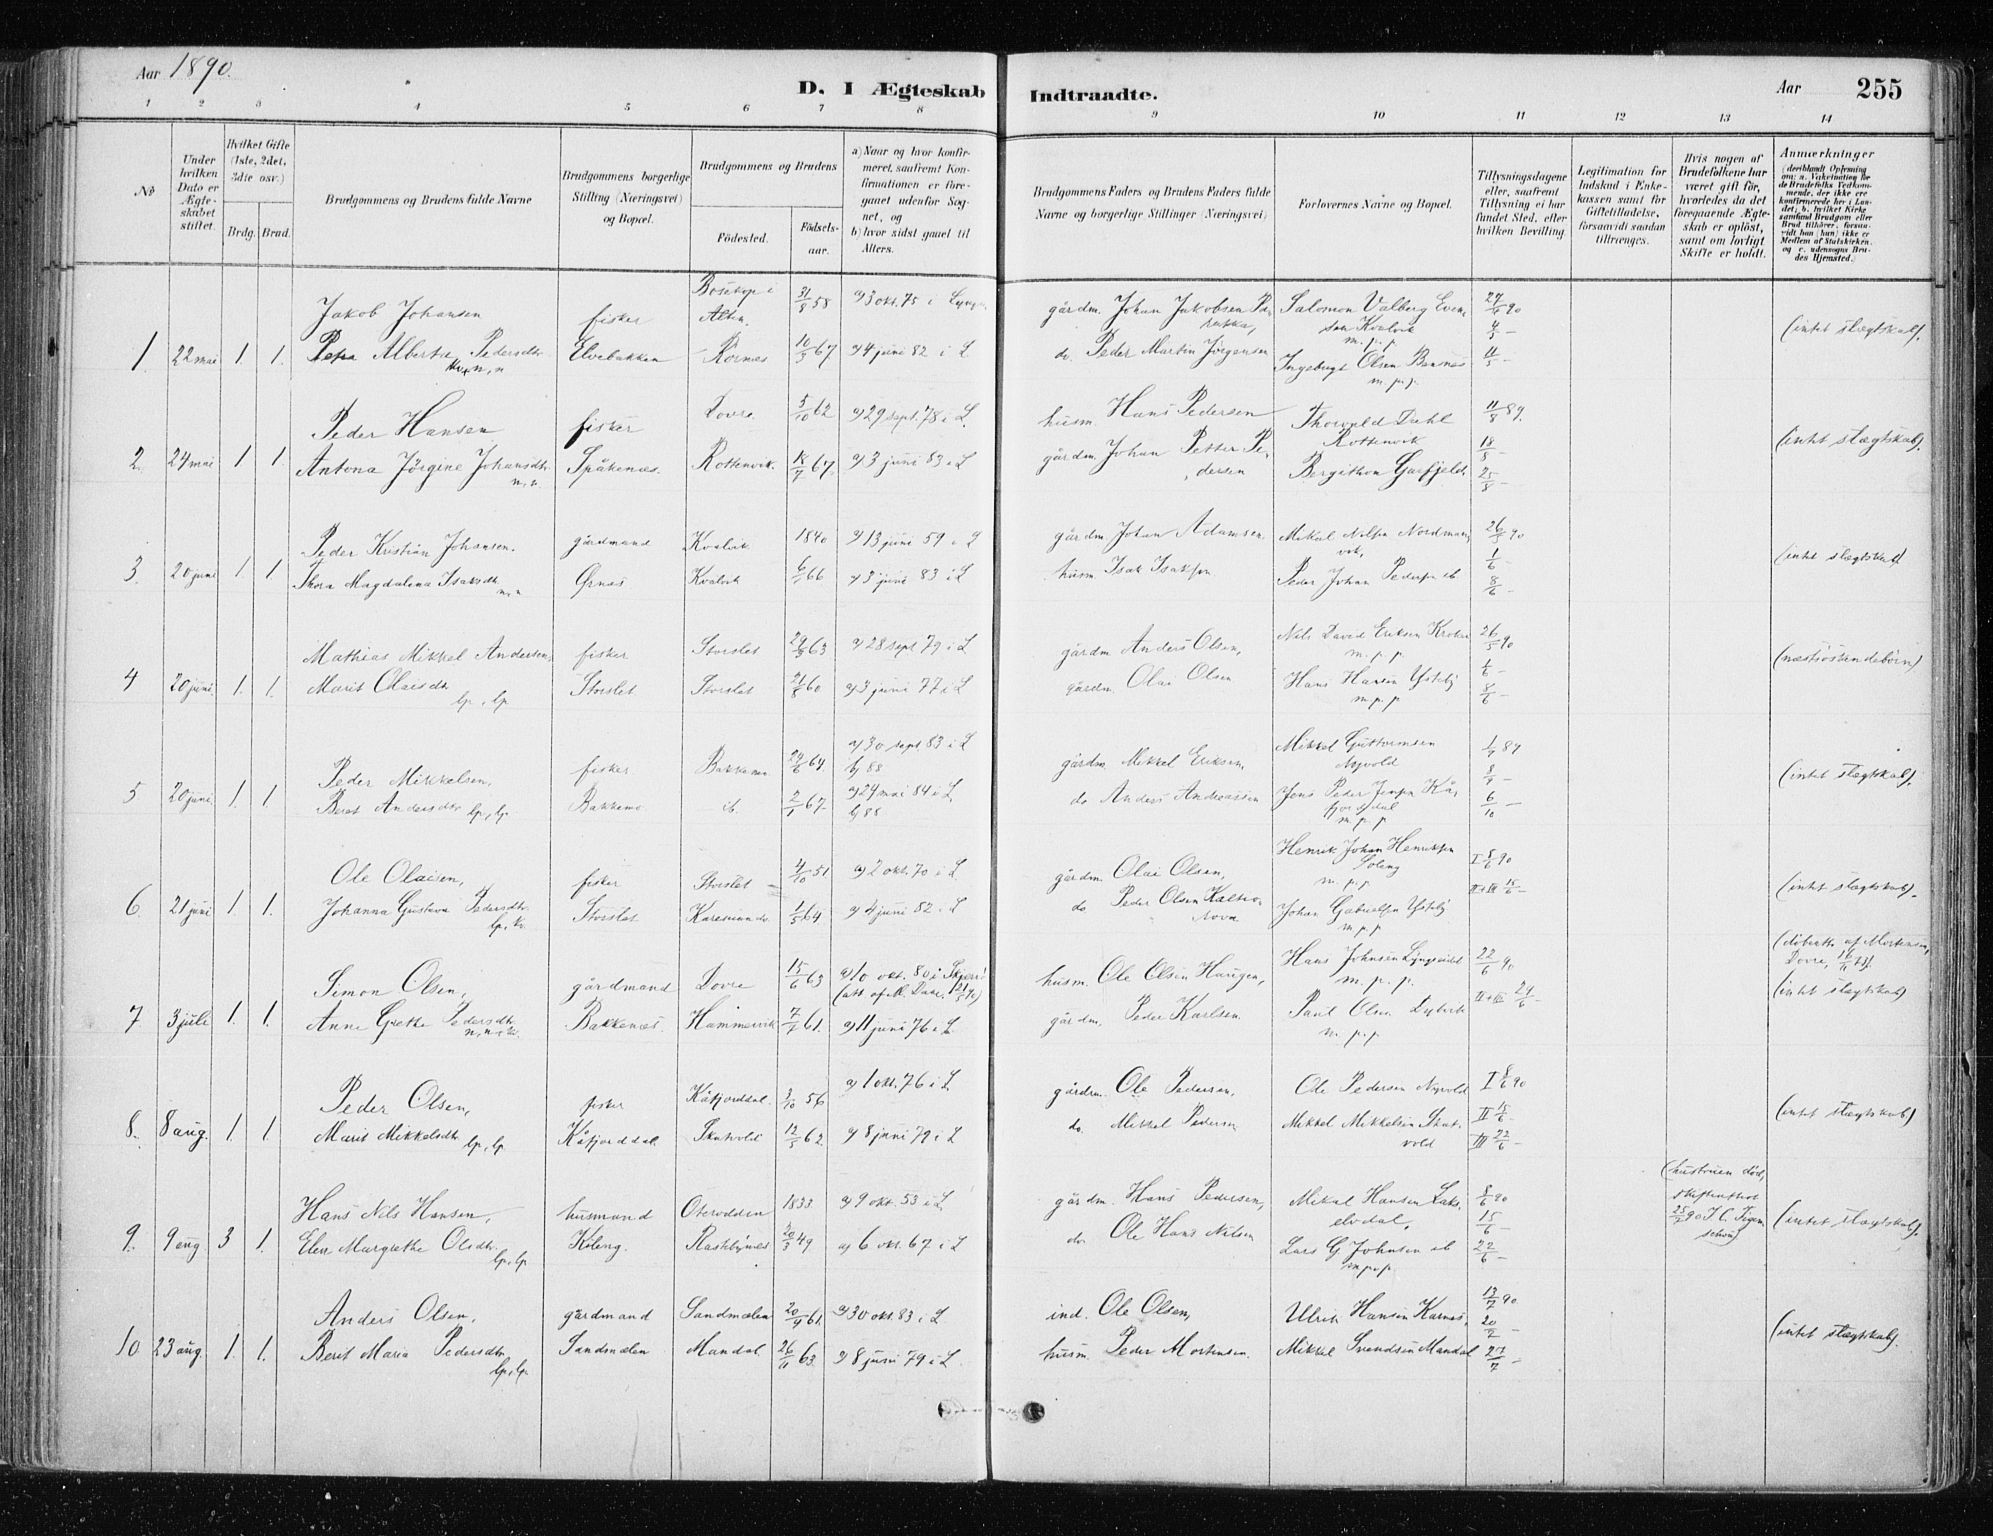 Aar 1890.
D. I Ægteskab Indtraadte.
Aar 255
1 2 3 4 5 6 7 8 9 10 11 12 13 14
No
Under hvilken Dato er Ægteskabet stiftet.
Hvilket Gifte (1ste, 2det, 3die osv.)
Brdg. Brud.
Brudgommens og Brudens fulde Navne
Brudgommens borgerlige Stilling (Næringsvei) og Bopæl.
Brudgommens og Brudens
Födested. Födsels-aar.
a) Naar og hvor konfirmeret, saafremt Konfirmationen er foregaaet udenfor Sognet, og
b) hvor sidst gaaet til Alters.
Brudgommens Faders og Brudens Faders fulde Navne og borgerlige Stillinger (Næringsvei)
Forlovernes Navne og Bopæl.
Tillysningsdagene eller, saafremt Tillysning ei har fundet Sted, efter hvilken Bevilling.
Legitimation for Indskud i Enkekassen samt for Giftetilladelse, forsaavidt saadan tiltrænges.
Hvis nogen af Brudefolkene har været gift för, hvorledes da det foregaaende Ægteskab er oplöst, samt om lovligt Skifte er holdt.
Anmærkninger
(deriblandt Oplysning om: a. Vakcination for de Brudefolks Vedkommende, der ikke ere konfirmerede her i Landet; b. hvilket Kirkesamfund Brudgom eller Brud tilhörer, forsaavidt han (hun) ikke er Medlem af Statskirken, og c. udensogns Brudes Hjemsted.)
Jakob Johansen fisker Bosekop i Alten 31/8 58 a) 3 okt. 75 i Lyngen gårdm. Johan Jakobsen Salomon Valberg Evensen Kvalvik m.p.p. 27/4 90 4/5 –
1 22 mai 1. 1. Petra Albertine Pedersdtr. n, n Elvebakken Rornes 10/3 67 a) 4 juni 82 i L do. Peder Martin Jörgensen Ingebrigt Olsen m.p.p. 11/5 – (intet slægtskab).
Peder Hansen fisker Dovre 5/10 62 a) 29 sept. 78 i L. husm. Hans Pedersen Thorvald Dahl Rottenvik 11/8 89.
2. 24 mai 1 1. Antona Jörgine Johansdtr. n, n. Spåkenæs. Rottenvik. 18/7 67. a) 3 juni 83 i L gårdm. Johan Petter Pedersen Bergithon Garfjeld 18/8 – 25/8 – (intet slægtskab).
Peder Kristian Johansen. gårdmand Kvalvik 1840 a) 13 juni 59 i L gårdm. Johan Adamsen. Mikal Nilsen Nordmanvik, 26/5 90
3 20 juni 1. 1 Thora Magdalena Isaksdtr. n, n Ørnes Kvalvik 6/1 66 a) 3 juni 83 i L husm. Isak Isaksen Peder Johan Pedersen ib 1/6 – 8/6 – (intet slægtskab)
Mathias Mikkel Andersen, fisker Storslet 29/9 63 a) 28 sept 79 i L gårdm. Anders Olsen, Nils David Eriksen m.p.p. 26/5 90
4 20 juni. 1. 1. Marit Olaisdtr. lp, lp Storslet Storslet 21/8 60 a) 3 juni 77 i L gårdm. Olai Olsen Hans Hansen Ysteby m.p.p. 1/6 – 8/6 – (næstsöskendebörn)
Peder Mikkelsen, fisker Bakkemo 24/6 64. a) 30 sept 83 i L b) 88 gårdm. Mikkel Eriksen, Mikkel Guttormsen Nyvold 1/9 89
5 20 juni. 1. 1 Beret Andersdtr. lp, lp Bakkemo ib. 2/1 67 a) 24 mai 84 i L b) 88 do Anders Andreassen Jens Peder Jensen Kåfjorddal m.p.p 8/9 – 6/10 – (intet slægtskab).
Ole Olaisen, fisker Storslet 4/10 51 a) 2 okt. 70 i L gårdm. Olai Olsen, Henrik Johan Henriksen Soleng m.p.p I 8/6 90
6 21 juni 1. 1. Johanna Gustava Pedersdtr. lp, kv. Storslet Karesuando 1/5 64 a) 4 juni 82 i L do Peder Olsen Johan Gabrielsen Ysteby m.p.p II+III 15/6 – (intet slægtskab).
Simon Olsen, gårdmand Dovre 15/6 63 a) 10 okt. 80 i (att. af husm. Ole Olsen Haugen, Hans Johnsen Lyngseidet m.p.p. 22/6 90 (döbeatt. af Mortensen, Dovre,
7 3 juli 1. 1. Anne Grethe Pedersdtr. Bakkenæs. Hammervik 7/7 61. a) 11 juni 76 i L gårdm. Peder Karlsen Paul Olsen m.p.p. II+III 29/6 – (intet slægtskab)
Peder Olsen, fisker Kåfjorddal. 3/10 56 a) 1 okt. 76 i L gårdm. Ole Pedersen, Ole Pedersen Nyvold I 8/6 90
8. 8 aug. 1 1 Marit Mikkelsdtr. lp, lp Kåfjorddal. Skatvold 12/5 62 a) 8 juni 79 i L do. Mikkel Pedersen Mikkel Mikkelsen Skatvold II 15/6 – III 22/6 – (intet slægtskab)
Hans Nils Hansen, husmand Oterodden 1833. a) 9 okt. 53 i L gårdm. Hans Pedersen, Mikal Hansen Lakselvdal, 8/6 90 (hustruen död, skifteattest
9. 9 aug 3 1. Elen Margrethe Olsdtr. lp, lp Koieng. Rastebynes 20/3 49 a) 6 okt. 67 i L do. Ole Hans Nilsen Lars G Johnsen ib m.p.p. 15/6 – 22/6 – (intet slægtskab).
Anders Olsen, gårdmand Sandmælen 20/9 61. a) 30 okt. 83 i L ind. Ole Olsen, Ulrik Hansen Karnes, 13/7 90
10 23 aug. 1. 1. Beret Maria Pedersdtr. lp, lp. Sandmælen Mandal 26/11 63. a) 8 juni 79 i L. husm. Peder Mortensen. Mikkel Svendsen Mandal 20/7 – 27/7 – (intet slægtskab).